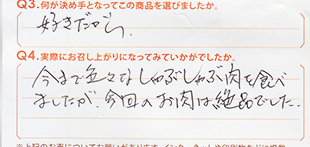 Q3.何が決め手となってこの商品を選びましたか。
好きだから。
Q4.実際にお召し上がりになってみていかがでしたか。
今まで色々なしゃぶしゃぶ肉を食べ
ましたが、今回のお肉は絶品でした。